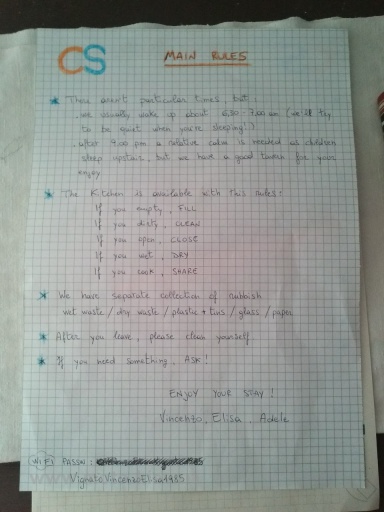 CS MAIN RULES
There aren't particular times, but:
. we usually wake up about 6,30 - 7,00 am (we'll try
to be quiet when you're sleeping!)
. after 9.00 pm a relative calm is needed as children
sleep upstairs, but we have a good tavern for your
enjoy
The Kitchen is available with this rules:
If you empty, FILL
If you dirty, CLEAN
If you open, CLOSE
If you wet, DRY
If you cook, SHARE
We have separate collection of rubbish
wet waste / dry waste / plastic + tins / glass / paper
After you leave, please clean yourself
If you need something, ASK!
ENJOY YOUR STAY!
Vincenzo, Elisa, Adele
WiFi PASSW:
VignatoVincenzoElisa